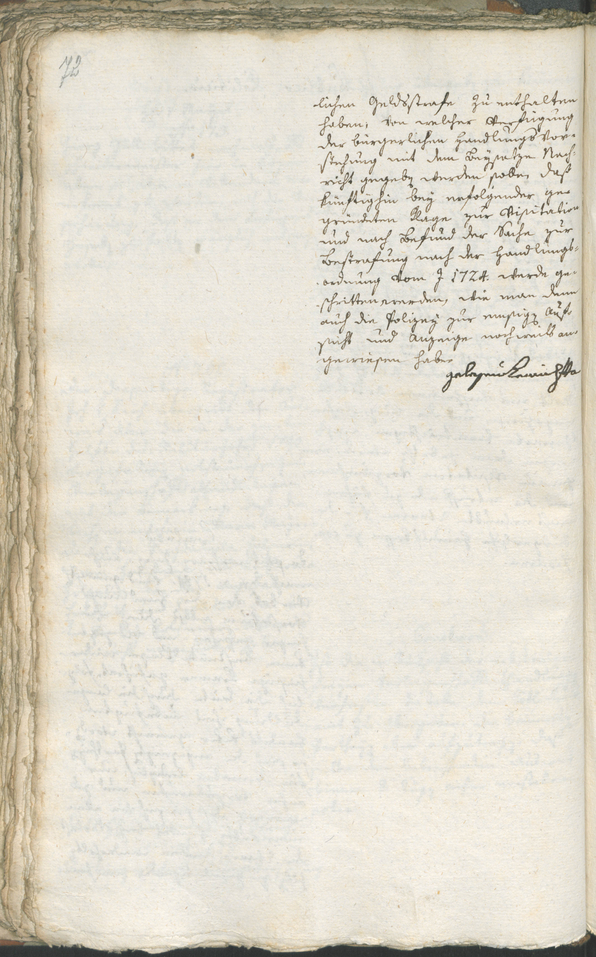 72
lichen Geldsstrafe zu enthalten
haben, von welcher Verfügung
der bürgerlichen Handlungs Vor-
stehung mit dem Beysatze Nach-
richt gegeben werden solle, daß
künftighin bey erfolgender ge-
gründeten Klage zur Visitation
und nach Befund der Sache zur
Bestrafung nach der Handlungs-
ordnung vom J 1724. werde ge-
schritten werden, wie man dann
auch die Polizey zur
sicht und Anzeige an-
gewiesen habe